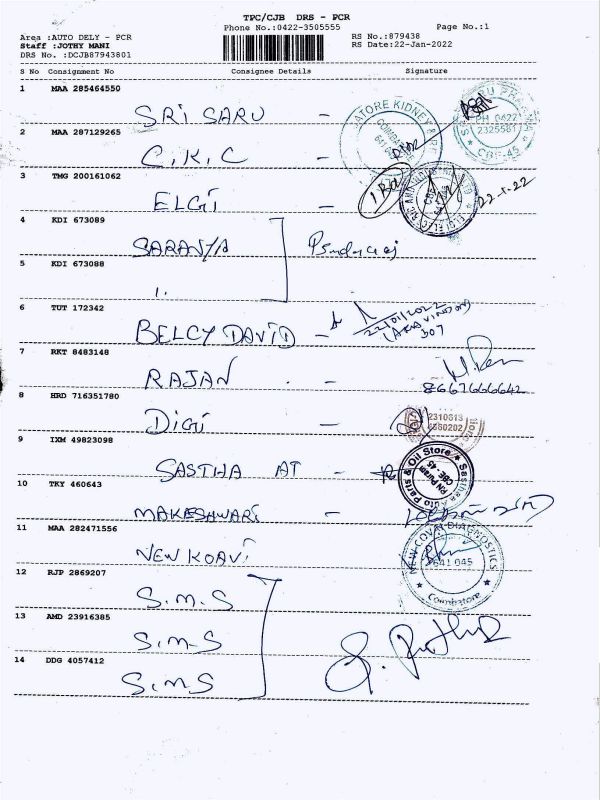 TPC/CJB DRS - PCR
Phone No.:0422-3505555
Page No.:1
Area :AUTO DELY - PCR
RS No.:879438
Staff :JOTHY MANI
RS Date:22-Jan-2022
DRS No. :DCJB87943801
S No Consignment No Consignee Details Signature
1 MAA 285464550
SRI SARU -
2 MAA 287129265
C.K.C -
3 TMG 200161062
ELGI - 22-1-22
4 KDI 673089
SARANYA
5 KDI 673088
6 TUT 172342
BELCY DAVID - 22/01/2022
(ARAVINDON)
307
7 RKT 8483148
RAJAN - 8667666642
8 HRD 716351780
DIGI - 2310813
9 IXM 49823098
SASTHA AT - Sastha Auto Parts & Oil Store RN Puram CBE-45
10 TKY 460643
MAKESHWARI -
11 MAA 282471556
NEW KOAVI NEW COVAI DIAGNOSTICS 641 045 Coimbatore
12 RJP 2869207
S.M.S
13 AMD 23916385
S.M.S
14 DDG 4057412
S.M.S